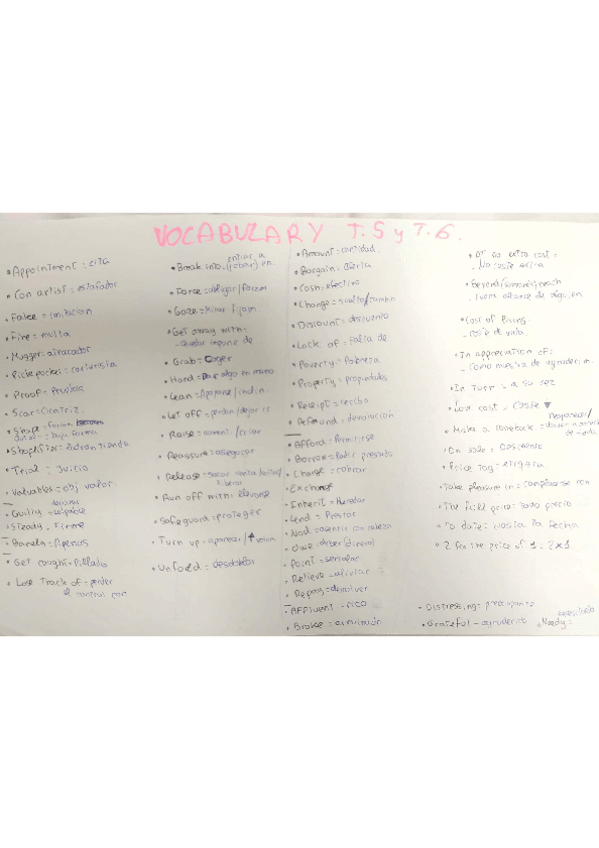 VOCABULARY T.5 y T.6.
• Appointment = cita
• Con artist = estafador
• Fake = imitacion
• Fine = multa
• Mugger = atracador
• Pickpocket = carterista
• Proof = Prueba
• Scar = Cicatriz.
• Shape = Forma
• Shoplifter =
• Trial = Juicio
• Valuables = obj valor
• Guilty = culpable
• Steady = Firme
• Barely = Apenas
• Get caught = Pillado
• Lose track of = perder el control por
• Break into = entrar a (robar) en
• Force = obligar/forzar
• Gaze = Mirar fijam
• Get away with: - Quedar impune de
• Grab = Coger
• Hand = Dar algo en mano
• Lean = Apoyarse/inclin.
• Let off = perdon/dejar ir
• Raise = aument./criar
• Reassure = asegurar
• Release =
• Run off with:
• Safeguard = proteger
• Turn up = aparecer/↑ volum
• Unfold = desdoblar
• Amount = cantidad.
• Bargain =
• Cash = efectivo
• Change = suelto/cambio
• Discount = descuento
• Lack of = Falta de
• Poverty = Pobreza
• Property = propiedades
• Receipt = recibo
• Refund = devolucion
• Afford = Permitirse
• Borrow = Pedir prestado
• Charge = cobrar
• Exchange
• Inherit = Heredar
• Lend = Prestar
• Nod = asentir con cabeza
• Owe = deber (dinero)
• Point = señalar
• Relieve = aliviar
• Repay = devolver
• Affluent = rico
• Broke =
• At no extra cost = - No coste extra
• Beyond someone's reach
• Cost of living - coste de vida
• In appreciation of: - como muestra de agradecim.
• In turn = a su vez
• Low cost = Coste ▼
• Make a comeback =
• On sale =
• Price tag = etiqueta
• Take pleasure in = complacerse con
• The full price: todo precio
• To date: Hasta la fecha
• 2 for the price of 1 = 2x1
• Distressing =
• Grateful =
• Needy =